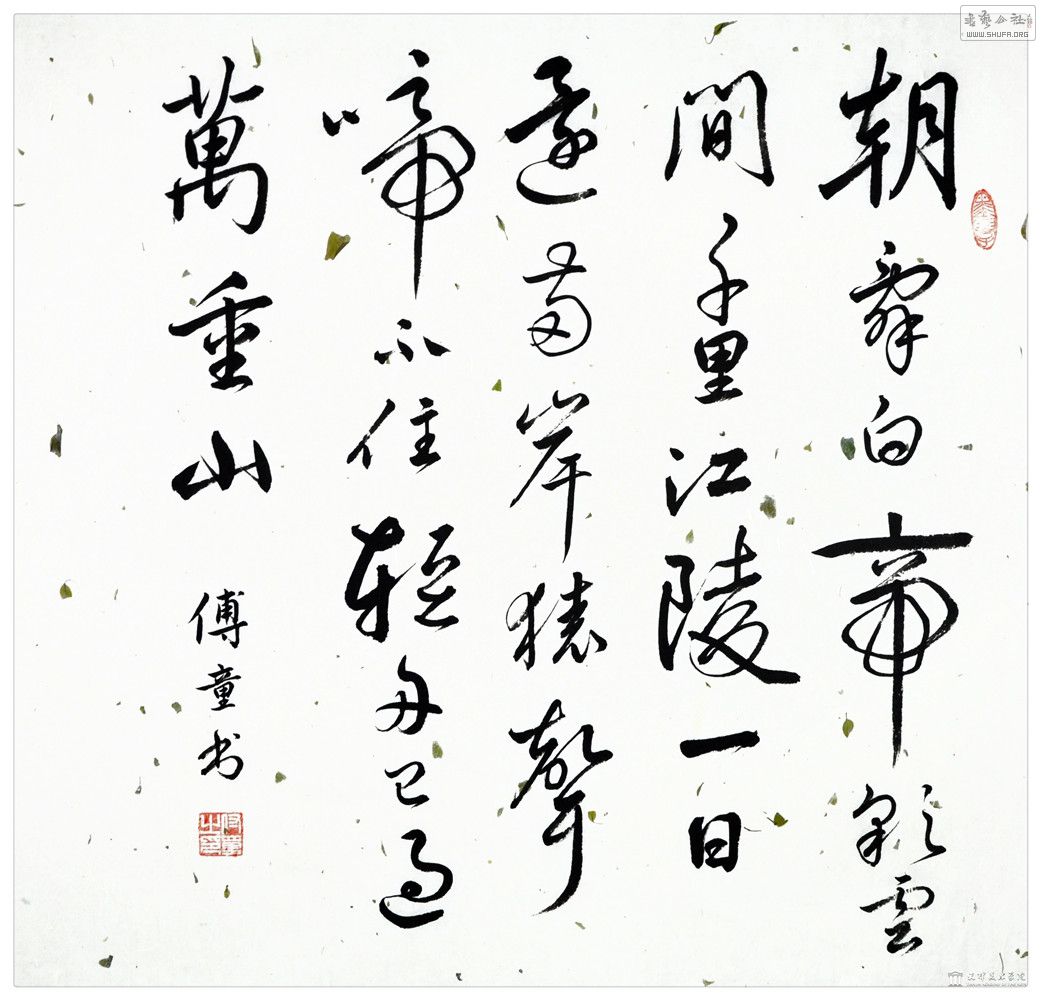 朝辞白帝彩雲
間千里江陵一日
還两岸猿聲
啼不住軽舟已過
萬重山
傅童书
書藝公社
WWW.SHUFA.ORG